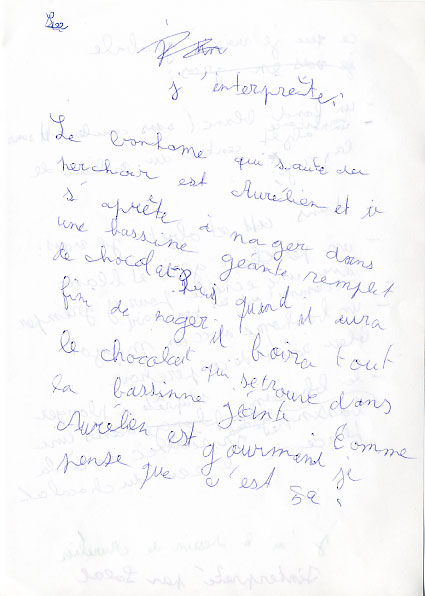 j'interprète :
Le bonhome qui saute du
perchoir est Aurélien et il
s'aprête à nager dans
une bassine geante remplit
de chocolat. Puis quand il aura
fini de nager il boira tout
le chocolat qui se trouve dans
la bassinne géante
Aurélien est gourmand comme
pense que c'est je
ça.